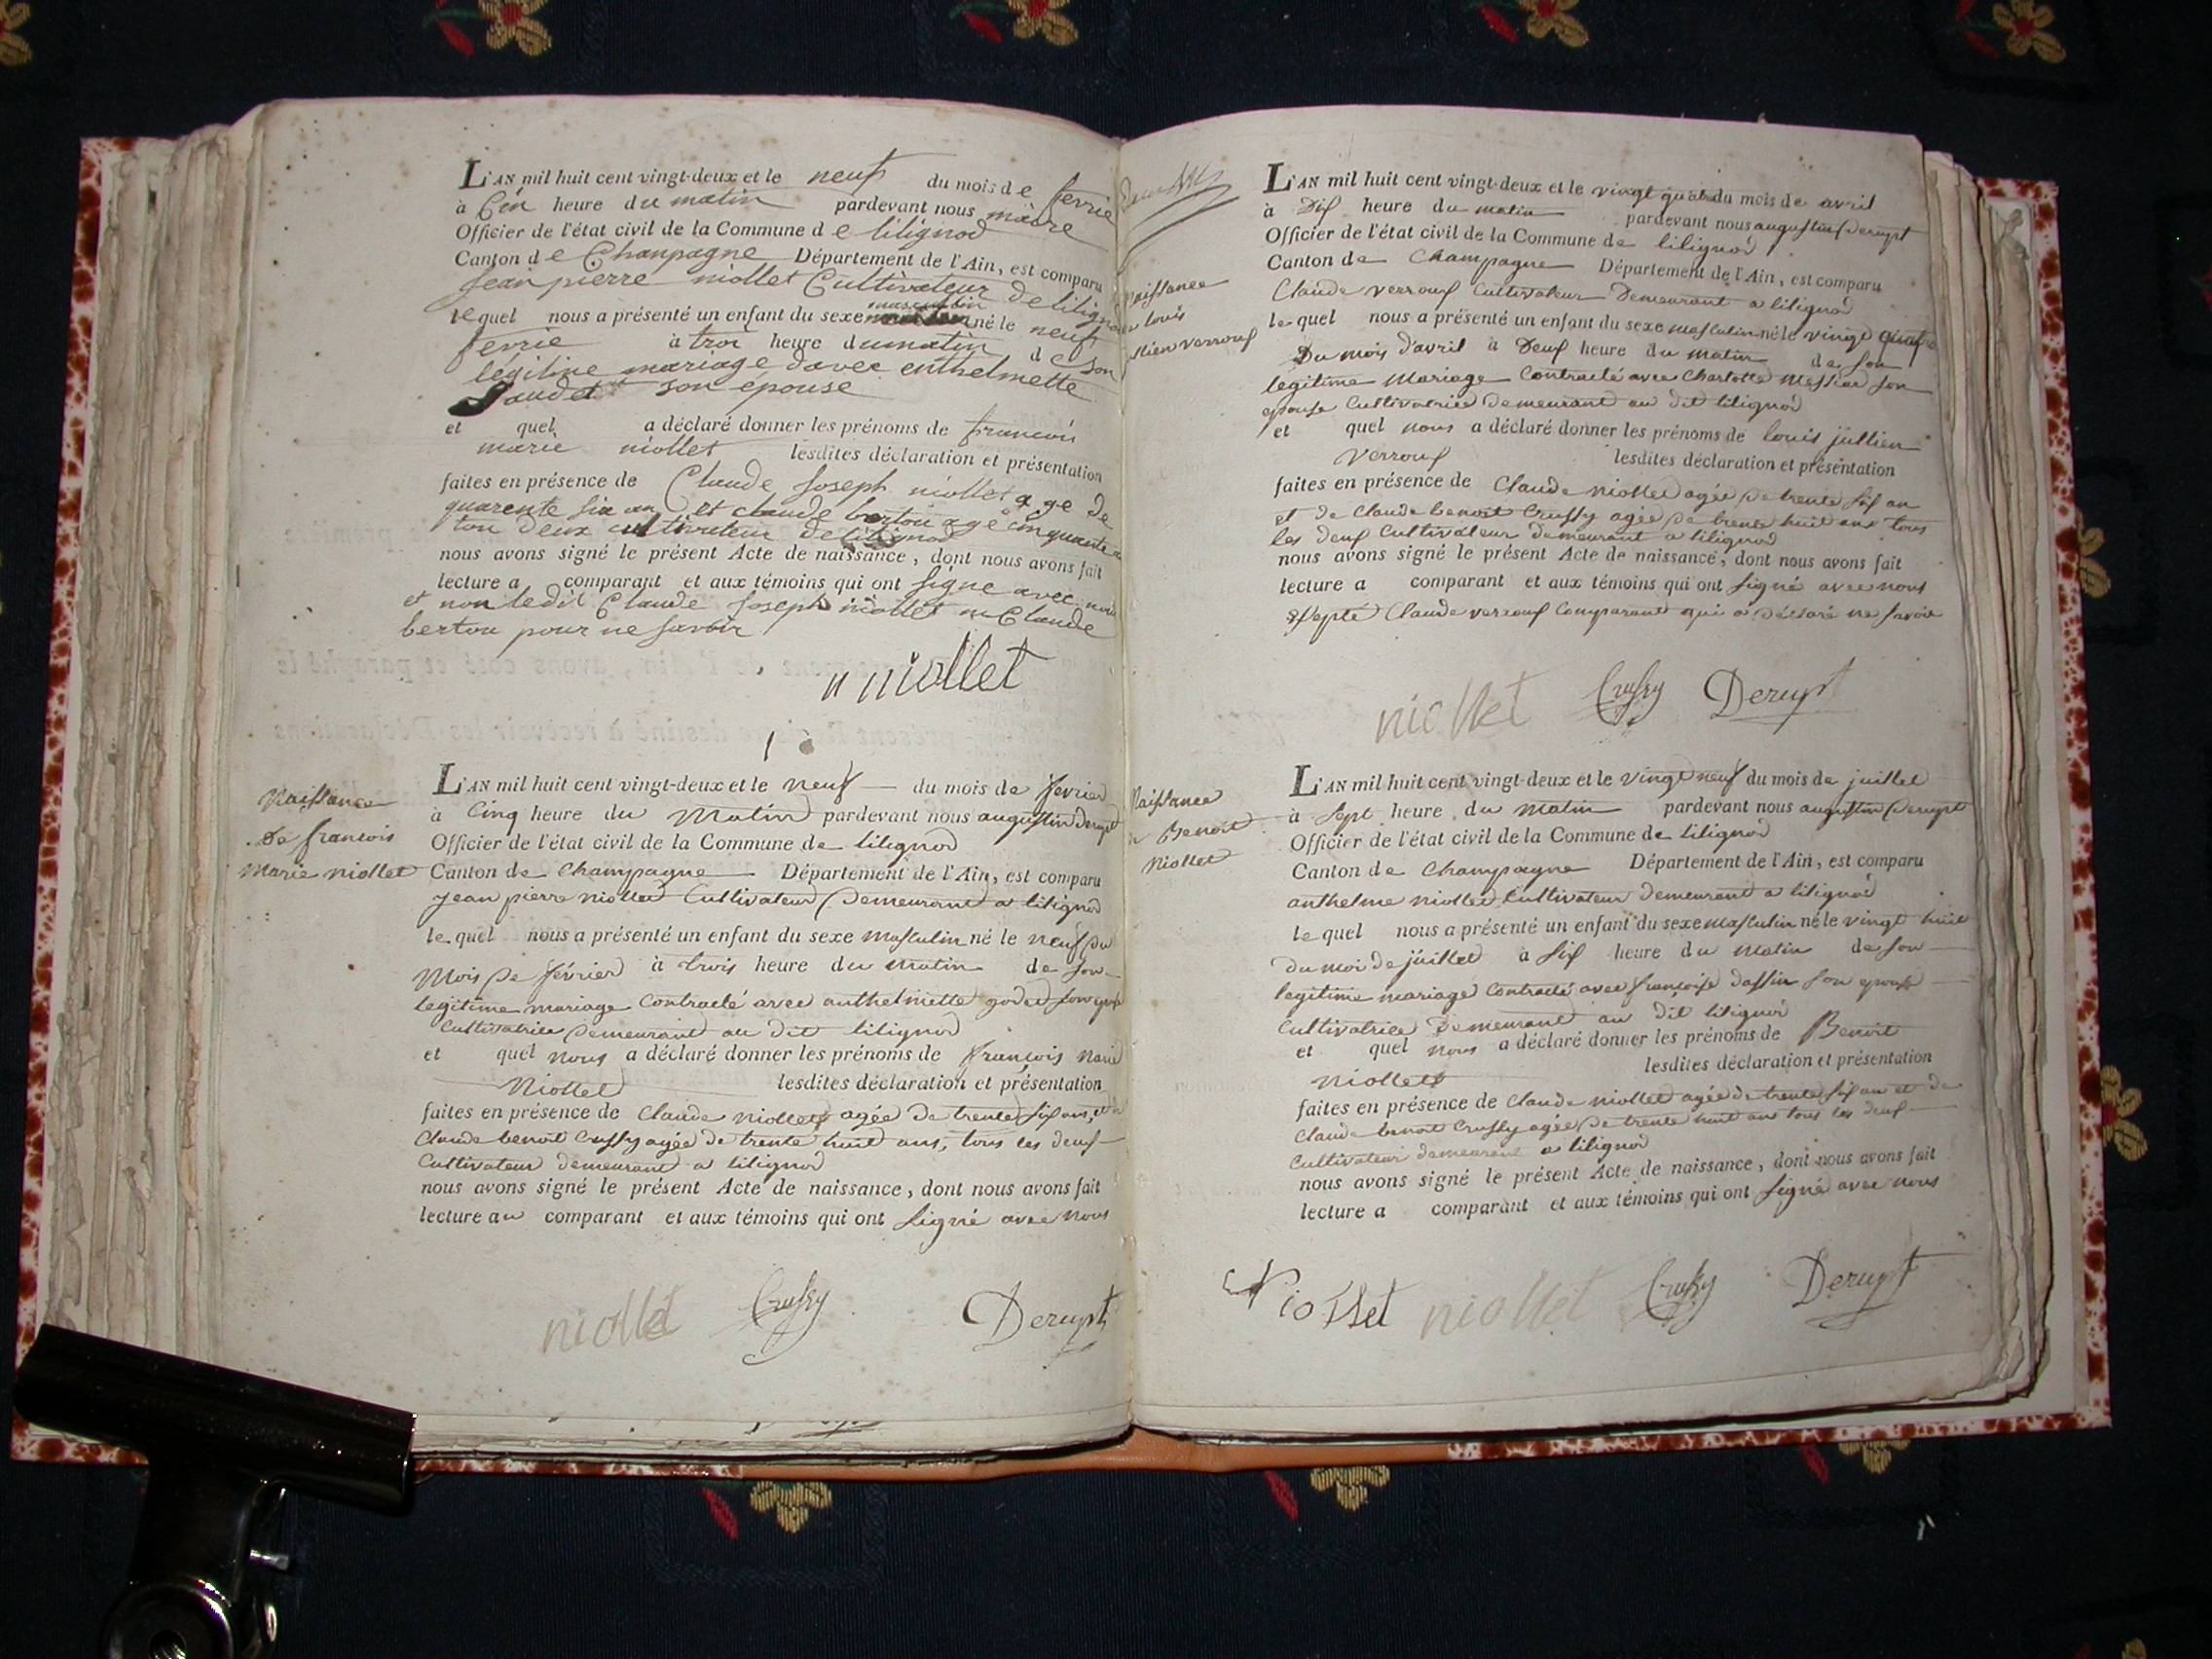 L'AN mil huit cent vingt-deux et le neuf du mois de fevrie
à Cin heure du matin pardevant nous maire
Officier de l'état civil de la Commune de lilignod
Canton de Chanpagne Département de l'Ain, est comparu
Jean pierre niollet Cultivateur de lilignod
lequel nous a présenté un enfant du sexe masculin né le neuf
fevrie à troi heure du matin de son
légitine mariage davec enthelmette
son epouse
et quel a déclaré donner les prénoms de francoui
marie niollet lesdites déclaration et présentation
faites en présence de Claude Joseph niollet age de
quarente six an et claude bertou age cinquante
tou deux cultivateur de lilignod
nous avons signé le présent Acte de naissance, dont nous avons fait
lecture a comparant et aux témoins qui ont signe avec nous
et non ledit Claude Joseph niollet ni Claude
bertou pour ne savoir
niollet
Naissance
De francois
Marie niollet
L'AN mil huit cent vingt-deux et le neuf du mois de fevrier
à Cinq heure du Matin pardevant nous augustin Derupt
Officier de l'état civil de la Commune de lilignod
Canton de Champagne Département de l'Ain, est comparu
Jean pierre niollet Cultivateur Demeurant a lilignod
le quel nous a présenté un enfant du sexe Masculin né le neuf Du
Mois De février à trois heure du matin de son
legitime mariage Contracté avec anthelmette godet son
Cultivatrice Demeurant au dit lilignod
et quel nous a déclaré donner les prénoms de François Marie
Niollet lesdites déclaration et présentation
faites en présence de Claude Niollet agée De trente six ans, et
Claude benoit Crussy agée de trente huit ans, tous les deux
Cultivateur demeurant a lilignod
nous avons signé le présent Acte de naissance, dont nous avons fait
lecture au comparant et aux témoins qui ont signé avec nous
niollet Crussy Derupt
Naissance
louis
verroux
L'AN mil huit cent vingt-deux et le vingt quatre du mois de avril
à Dix heure du matin pardevant nous augustin Derupt
Officier de l'état civil de la Commune de lilignod
Canton de Champagne Département de l'Ain, est comparu
Claude verroux Cultivateur Demeurant a lilignod
le quel nous a présenté un enfant du sexe masculin né le vingt quatre
Du mois d'avril à Deux heure du matin de son
legitime Mariage Contracté avec Charlotte son
epouse Cultivatrice Demeurant au dit lilignod
et quel nous a déclaré donner les prénoms de louis jullien
verroux lesdites déclaration et présentation
faites en présence de Claude Niollet agée De trente six an
et de Claude benoit Crussy agée De trente huit ans tous
les deux Cultivateur demeurant a lilignod
nous avons signé le présent Acte de naissance, dont nous avons fait
lecture a comparant et aux témoins qui ont signé avec nous
Claude verroux Comparant qui a déclaré ne savoir
niollet Crussy Derupt
Naissance
Benoit
Niollet
L'AN mil huit cent vingt-deux et le vingt neuf du mois de juillet
à sept heure du matin pardevant nous augustin Derupt
Officier de l'état civil de la Commune de lilignod
Canton de Champagne Département de l'Ain, est comparu
anthelme niollet Cultivateur demeurant a lilignod
le quel nous a présenté un enfant du sexe masculin né le vingt huit
Du moi de juillet à six heure du matin de son
legitime mariage Contracté avec françoise Dassin son epouse
Cultivatrice Demeurant au dit lilignod
et quel nous a déclaré donner les prénoms de Benoit
Niollet lesdites déclaration et présentation
faites en présence de Claude niollet agée de trente six an et de
Claude benoit Crussy agée De trente huit ans tous les deux
Cultivateur demeurant a lilignod
nous avons signé le présent Acte de naissance, dont nous avons fait
lecture a comparant et aux témoins qui ont signé avec nous
Niollet niollet Crussy Derupt